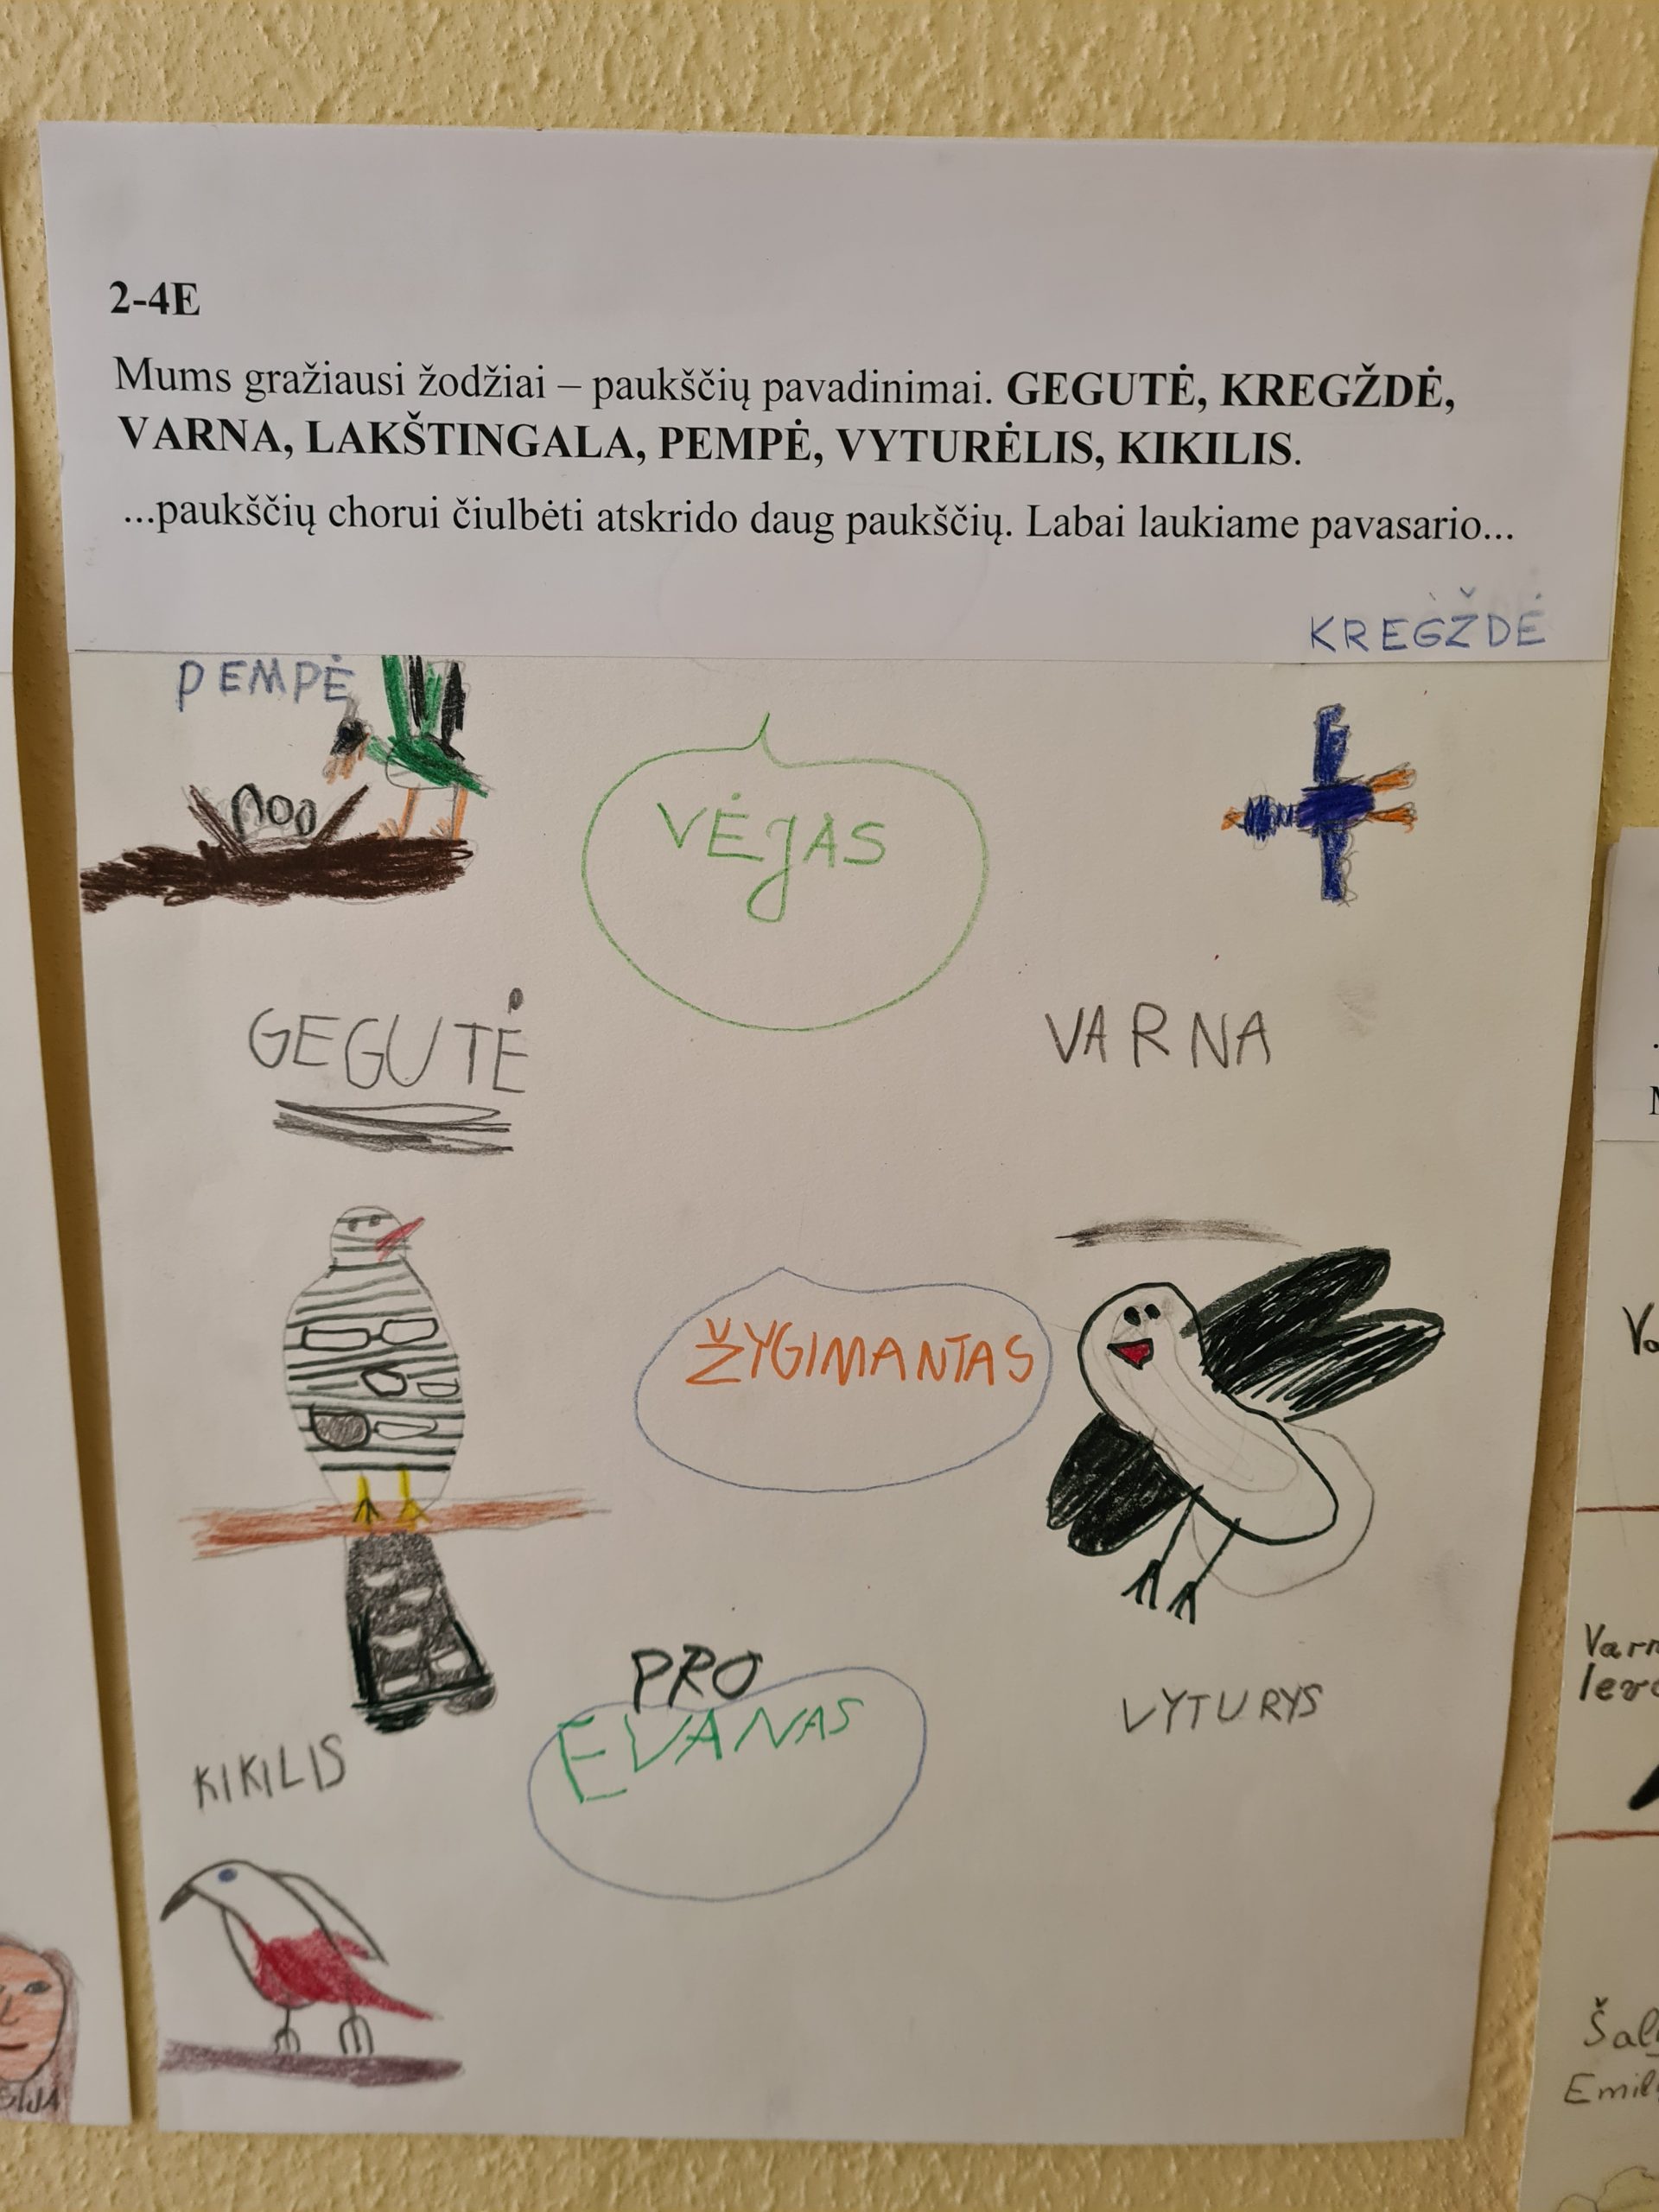 2-4E
Mums gražiausi žodžiai – paukščių pavadinimai. GEGUTĖ, KREGŽDĖ,
VARNA, LAKŠTINGALA, PEMPĖ, VYTURĖLIS, KIKILIS.
...paukščių chorui čiulbėti atskrido daug paukščių. Labai laukiame pavasario...
KREGŽDĖ
PEMPĖ
VĖJAS
GEGUTĖ
VARNA
ŽYGIMANTAS
PRO
EVANAS
VYTURYS
KIKILIS